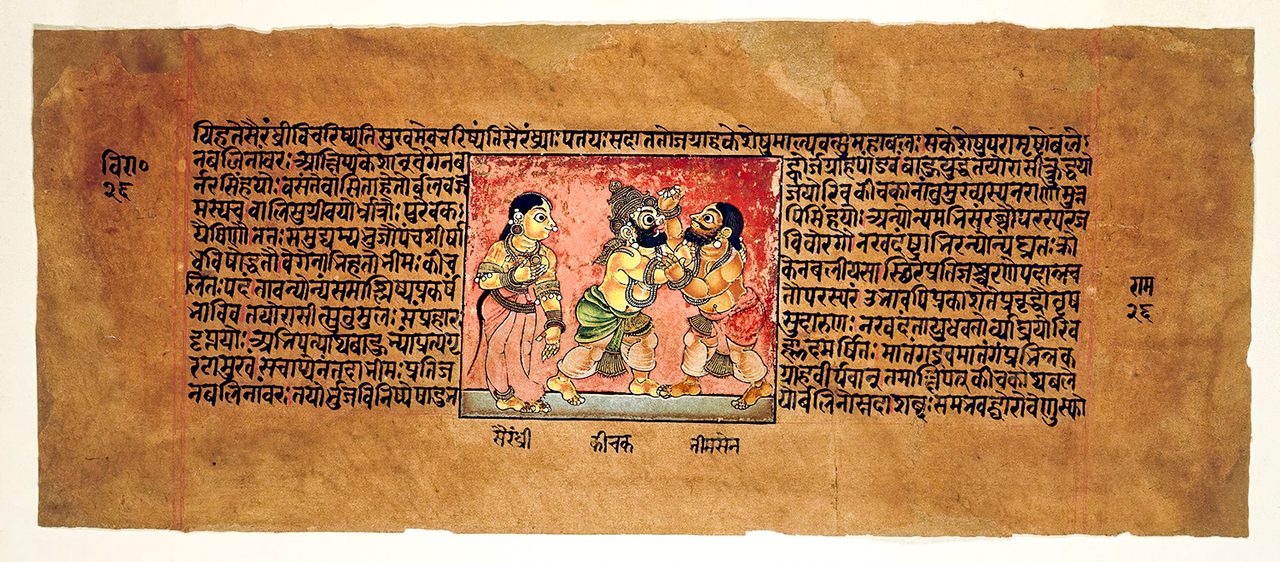 विरा०
२६
यिहतेसैरंध्रीविचरिष्यतिसुखमेवचरिष्यंतिसैरंध्र्याः पतयः सदा ततोजग्राहकेशेषुमाल्यवत्सुमहाबलः सकेशेषुपरामृष्टोबले
नबलिनांवरः आक्षिप्यकेशान्वेगेनबा ह्वोर्जग्राहपांडवं बाहुयुद्धंतयोरासीत्क्रुद्धयो
र्नरसिंहयोः वसंतेवासिताहेतोर्बलवद्ग जयोरिव कीचकानांतुमुख्यस्यनराणामुत्त
मस्यच वालिसुग्रीवयोर्भ्रात्रोः पुरेवक पिसिंहयोः अन्योन्यमभिसंरब्धौपरस्परज
यैषिणौ ततः समुद्यम्यभुजौपंचशीर्षा विवोरगौ नखदंष्ट्राभिरन्योन्यंघ्नतः क्रो
धविषोद्धतौ वेगेनाभिहतोभीमः कीच केनबलीयसा स्थिरप्रतिज्ञः सरणेपदान्नच
लितः पदं तावन्योन्यंसमाश्लिष्यप्रकर्षं तौपरस्परं उभावपिप्रकाशेतेप्रवृद्धौवृष
भाविव तयोरासीत्सुतुमुलः संप्रहारः सुदारुणः नखदंतायुधवतोर्व्याघ्रयोरिव
दृप्तयोः अभिपत्याथबाहुभ्यांप्रत्यगृ ह्णादमर्षितः मातंगइवमातंगंप्रभिन्नक
रटामुखं सचाप्येनंतदाभीमः प्रतिज ग्राहवीर्यवान् तमाक्षिपत्कीचकोथबले
नबलिनांवरः तयोर्भुजविनिष्पेषादुभ योर्बलिनोस्तदा शब्दः समभवद्घोरोवेणुस्फो
सैरंध्री कीचक भीमसेन
राम
२६